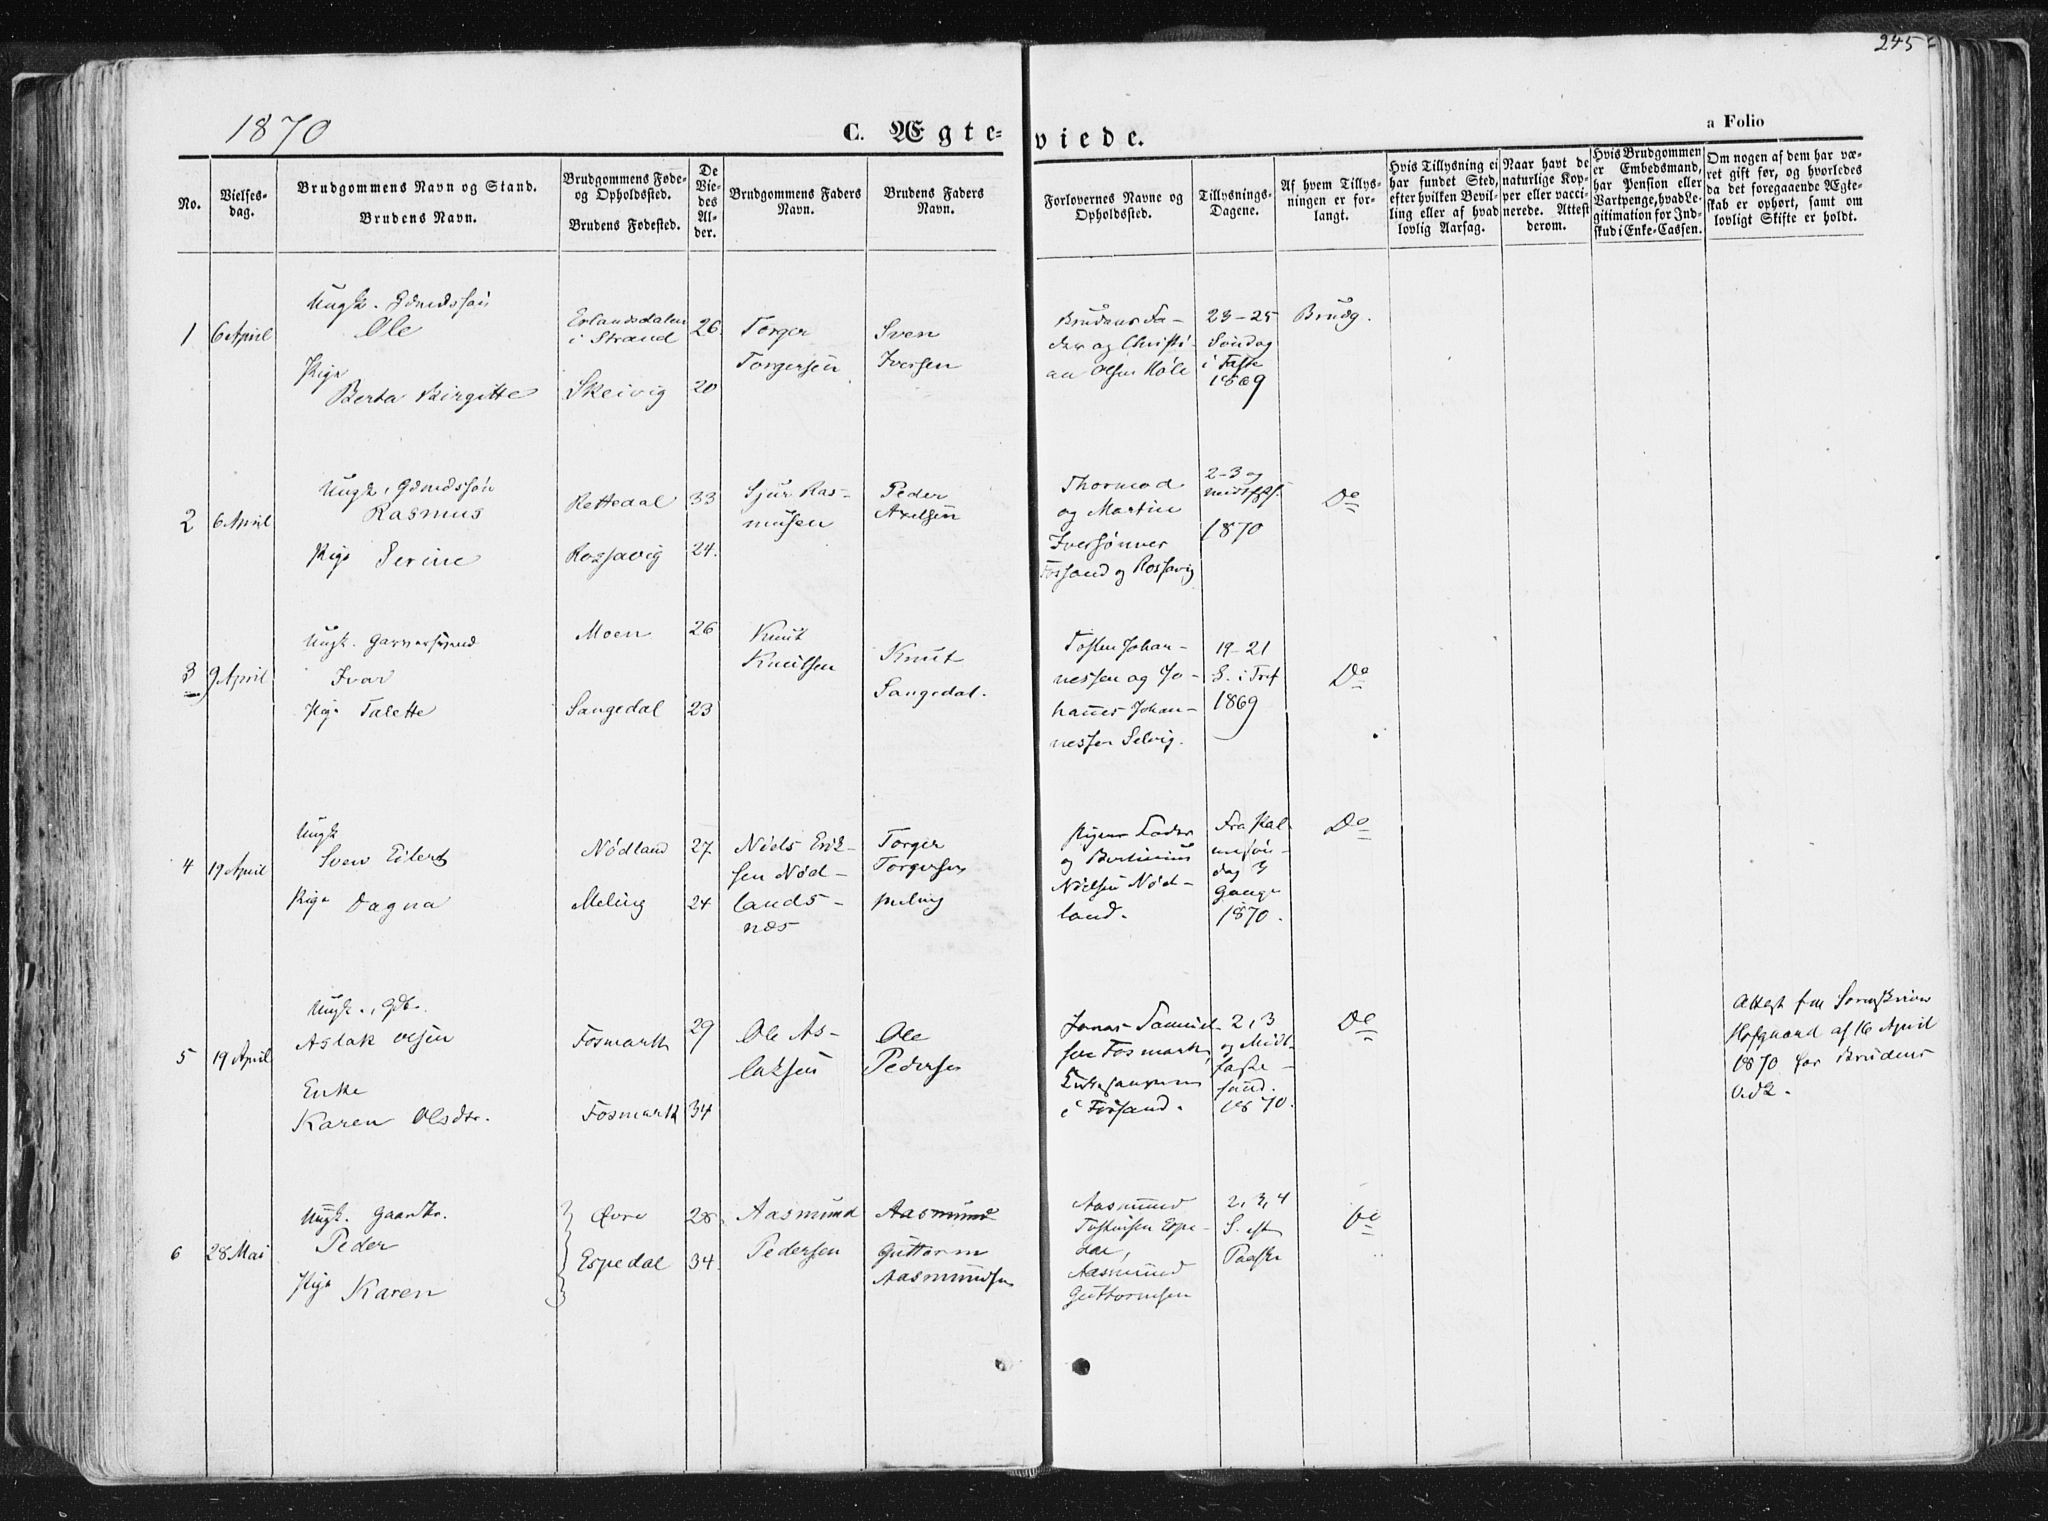 245
1870
C. Ægteviede.
a Folio
No.
Vielsesdag.
Brudgommens Navn og Stand.
Brudens Navn.
Brudgommens Føde-
og Opholdssted.
Brudens Fødested.
De
Vie-
des
Al-
der.
Brudgommens Faders
Navn.
Brudens Faders
Navn.
Forlovernes Navne og
Opholdssted.
Tillysnings-
Dagene.
Af hvem Tillys-
ningen er for-
langt.
Hvis Tillysning ei
har fundet Sted,
efter hvilken Bevil-
ling eller af hvad
lovlig Aarsag.
Naar havt de
naturlige Kop-
per eller vacci-
nerede. Attest
derom.
Hvis Brudgommen
er Embedsmand,
har Pension eller
Vartpenge, hvad Le-
gitimation for Ind-
skud i Enke-Cassen.
Om nogen af dem har væ-
ret gift før, og hvorledes
da det foregaaende Ægte-
skab er ophørt, samt om
lovligt Skifte er holdt.
1
6 April
Ungk. Gdmdssøn
Ole
Pige
Berta Birgitte
Erlandsdalen
i Strand
Skeivig
26
20
Torger
Torgersen
Sven
Iversen
Brudens Fa-
der og Christi-
an Olsen Høle
23-25
Søndag
i Faste
1869
Brudg.
2
6 April
Ungk. Gdmdssøn
Rasmus
Pige Serine
Rettedal
Rossavig
33
24.
Sjur Ras-
musen
Peder
Axelsen
Thormod
og Martin
Iversønner
Fossand og Rossavig
2-3 og
1870
Do
3
9 April
Ungk. Garversvend
Ivar
Pige Talette
Moen
Sangedal
26
23
Knut
Knutsen
Knut
Sangedal.
Tosten Johan-
nessen og Jo-
hannes Johan-
nessen Selvig.
19-21
S. i Tref
1869
Do
4
19 April
Ungk
Sven Eilert
Pige Dagna
Nødland
Meling
27
24
Niels Erik-
sen Nød-
lands-
næs
Torger
Torgersen
Meling
Pigens Fader
og Bertinius
Nielsen Nød-
land.
Fra Pal-
mesøn-
dag 3
Gange
1870.
Do
5
19 April
Ungk., Gdb.
Aslak Olsen
Enke
Karen Olsdtr.
Fosmark
Fosmark
29
34
Ole As-
laksen
Ole
Pedersen
Jonas Samuel-
sen Fosmark,
i Fossand.
2, 3
og Midt-
faste-
sønd.
1870.
Do
Attest fra Sorenskriver
Hofgaard af 16 April
1870 for Brudens
Vedk.
6
28 Mai
Ungk. Gaardbr.
Peder
Pige Karen
Øvre
Espedal
28
34
Aasmund
Pedersen
Aasmund
Guttorm
Aasmundsen
Aasmund
Tostensen Espe-
dal,
Aasmund
Guttormsen
2, 3, 4
S. eft
Paaske
Do